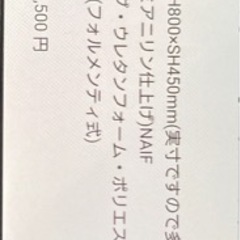 H800×SH450mm(実寸ですので多
アニリン仕上げ)NAIF
ブ・ウレタンフォーム・ポリエス
(フォルメンティ式)
,500 円